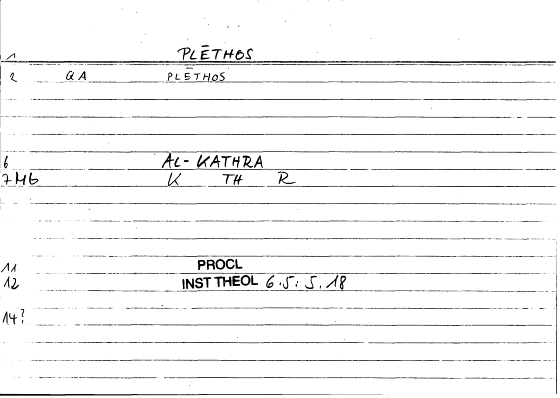 1 PLĒTHOS
2 QA PLĒTHOS
6 AL-KATHRA
7 Mb K TH R
11 PROCL
12 INST THEOL 6.5: 5.18
14?